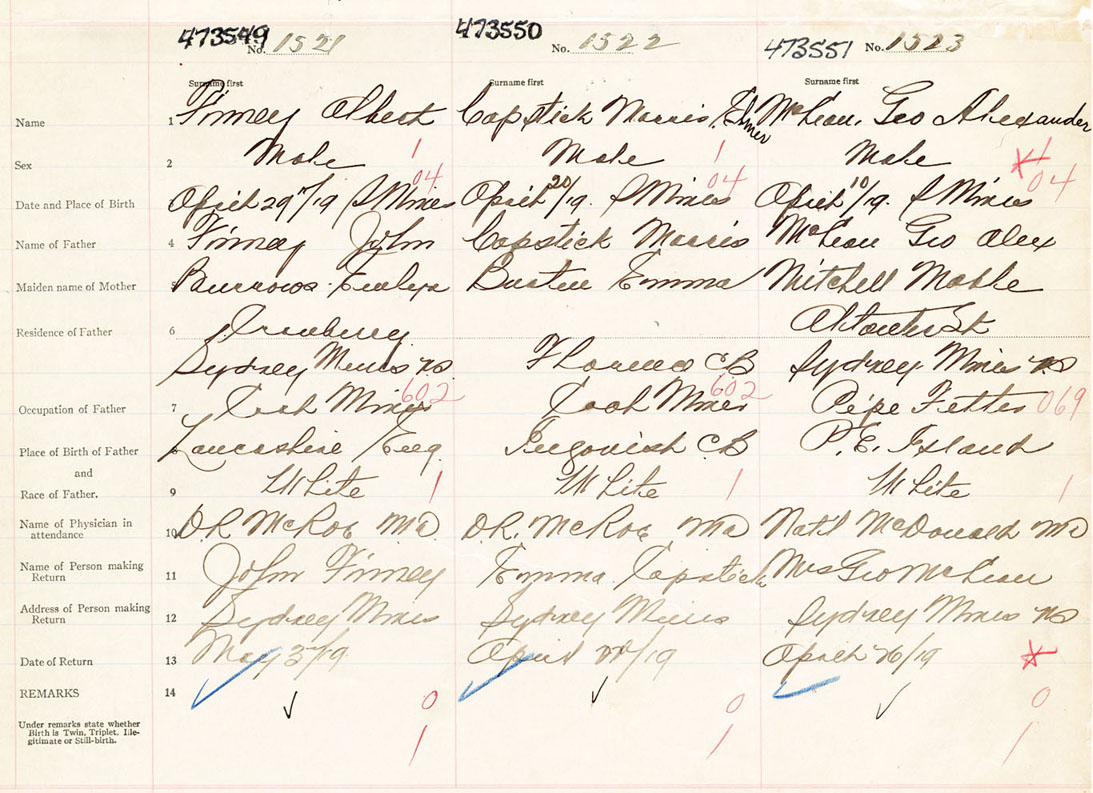 473549 No. 1521
473550 No. 1522
473551 No. 1523
Surname first Surname first Surname first
Name 1 Finney Albert Capstick Morris Elmer McLean, Geo Alexander
Sex 2 Male 1 Male 1 Male 1
04 04 04
Date and Place of Birth April 29th/19 S Mines April 20/19. S Mines April 10/19. S Mines
Name of Father 4 Finney John Capstick Morris McLean Geo Alex
Maiden name of Mother 5 Burrows Evelyn Emma Mitchell
Residence of Father 6 Cranberry
Sydney Mines NS Florence CB Sydney Mines NS
602 602
Occupation of Father 7 Coal Miner Coal Miner Pipe Fitter 069
Place of Birth of Father Lancashire Eng. Ingonish CB P. E. Island
and
Race of Father. 9 White 1 White 1 White 1
Name of Physician in attendance 10 D.R. McRae MD D.R. McRae MD Nat'l McDonald MD
Name of Person making Return 11 John Finney Emma Capstick Mrs Geo McLean
Address of Person making Return 12 Sydney Mines Sydney Mines Sydney Mines NS
Date of Return 13 May 3rd/19 April /19 April 26/19
REMARKS 14 0 0 0
Under remarks state whether
Birth is Twin, Triplet, Ille-
gitimate or Still-birth. 1 1 1